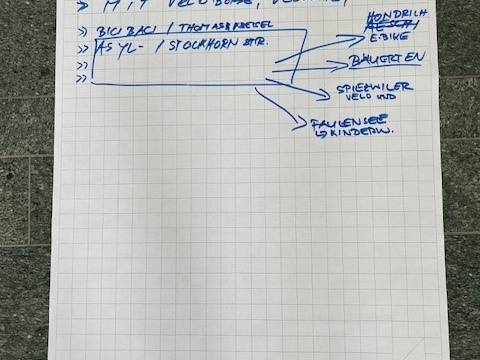 » MIT VELOBÖRSE,
» BICI BACI / THOMAS
» ASYL- / STOCKHORN STR.
»
»
HONDRICH
AESCHI
E-BIKE
BÄUERTEN
SPIEZWILER
VELO UND
FAULENSEE
↳ KINDERW.